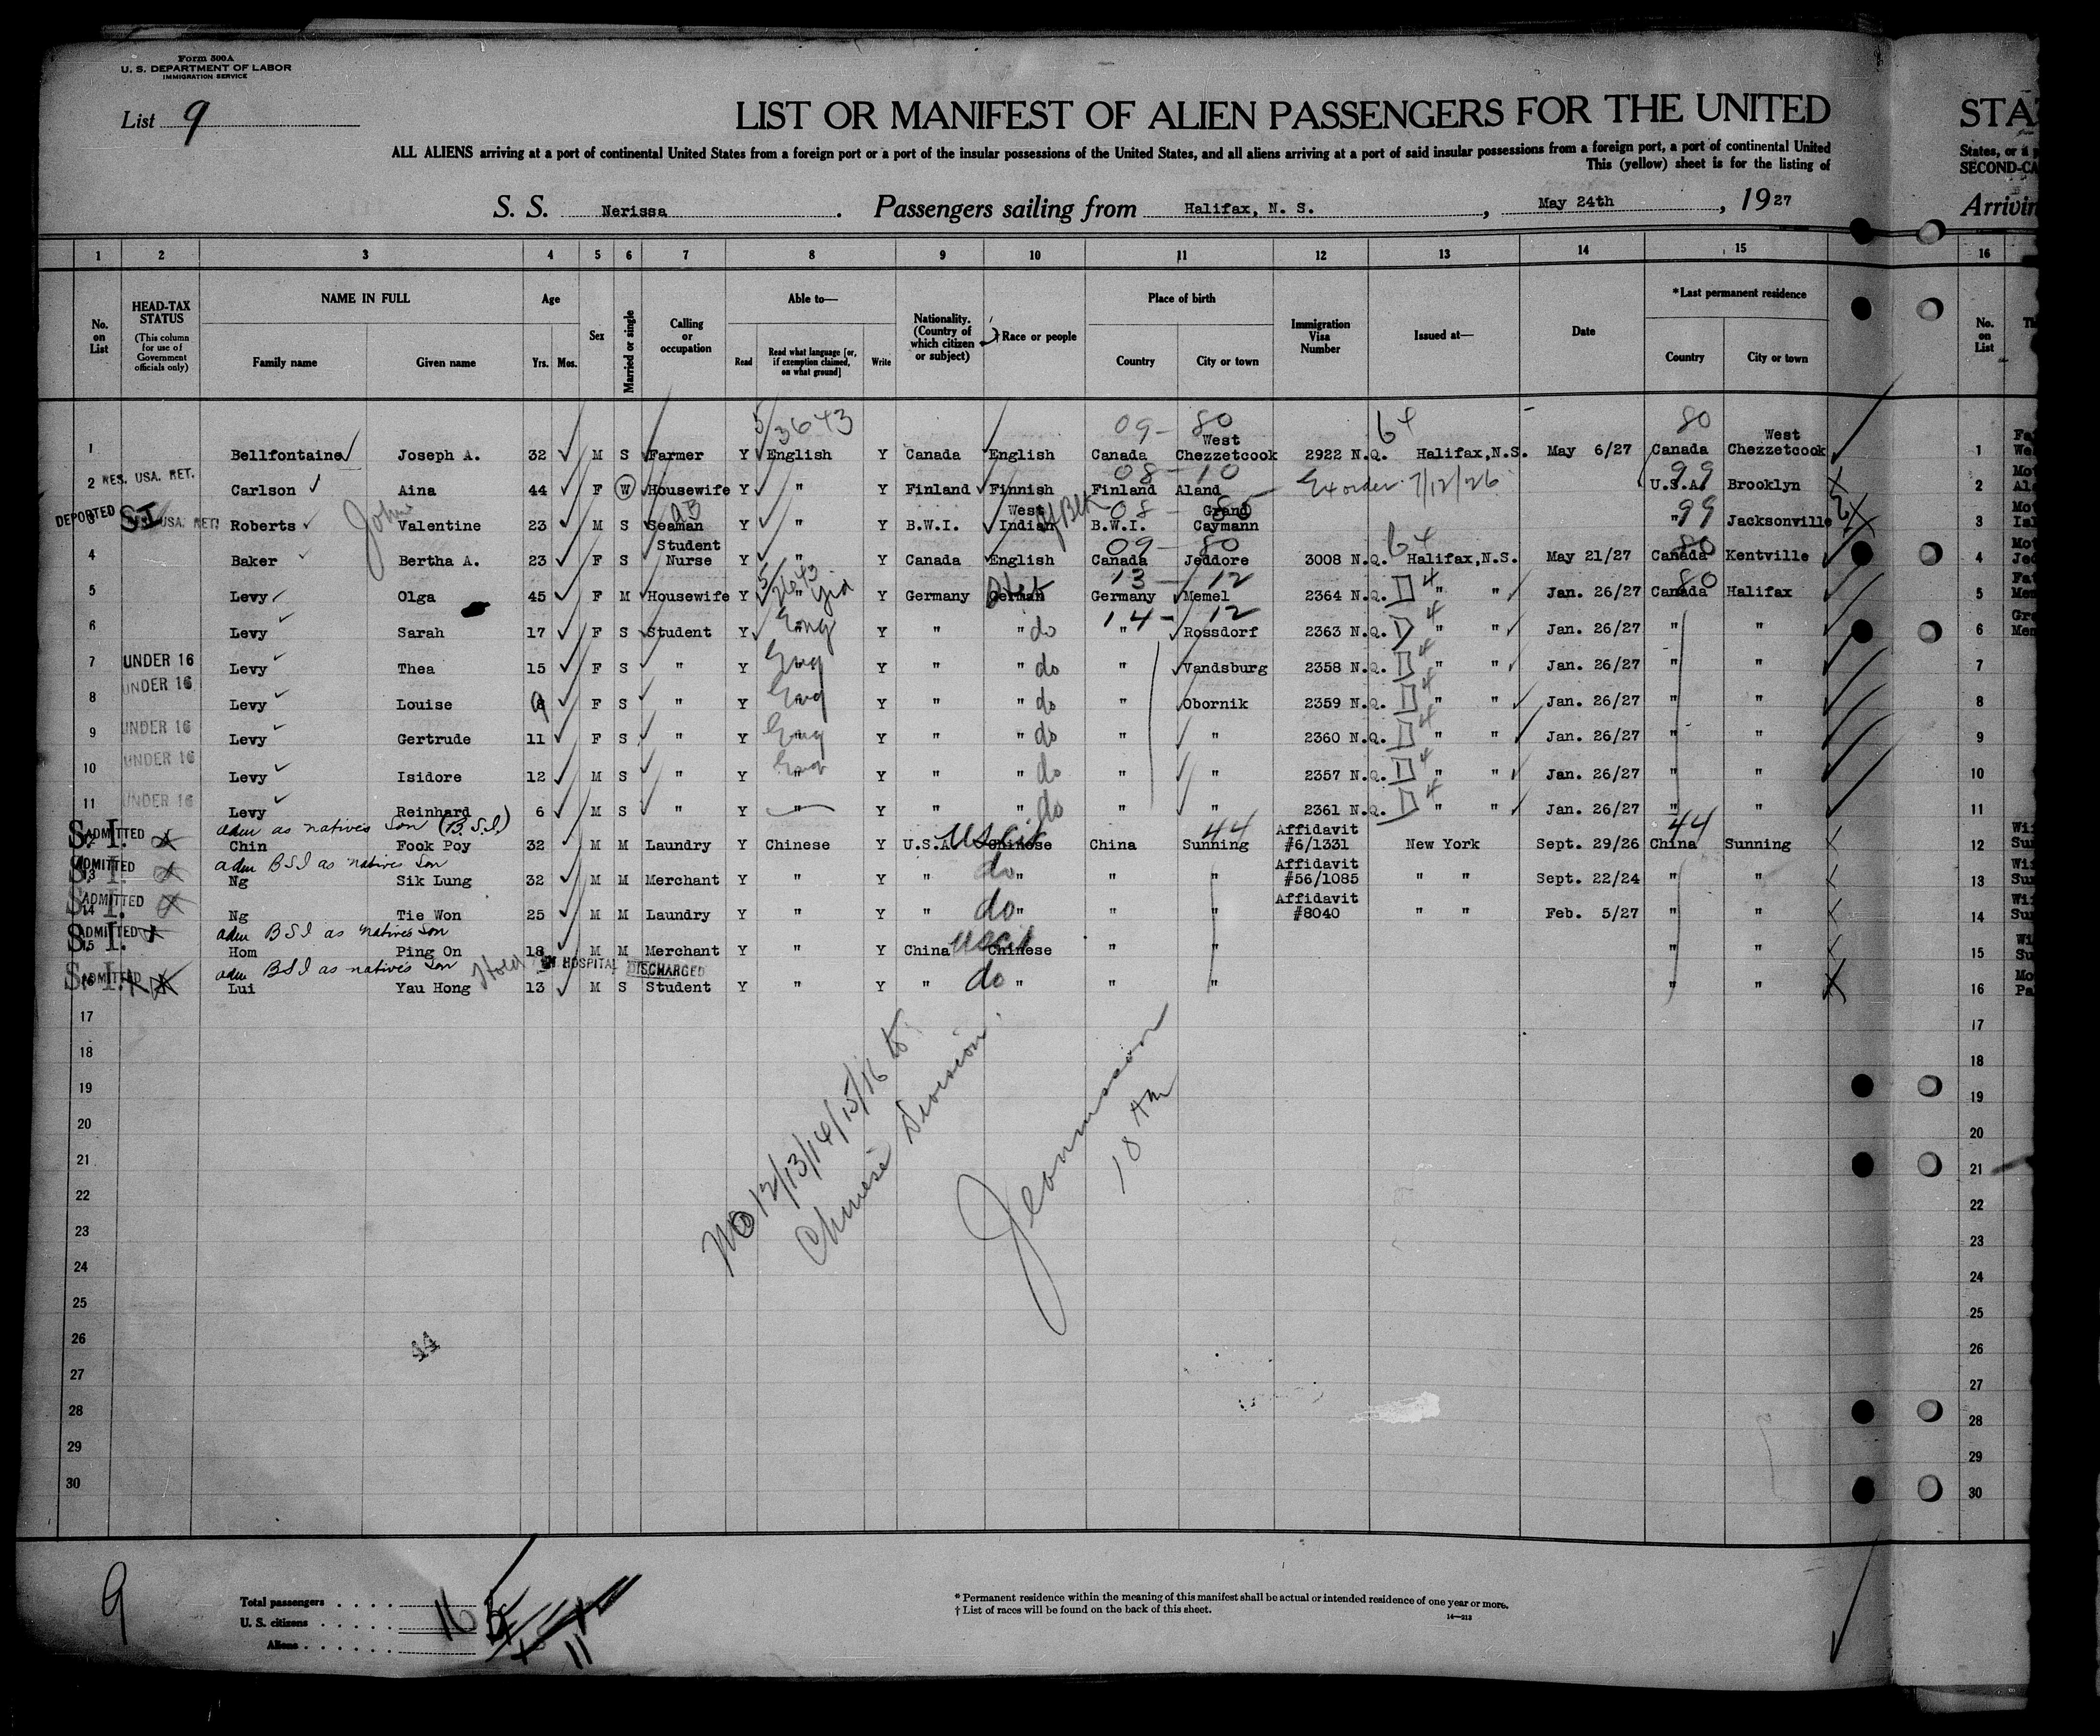 Form 500A
U. S. DEPARTMENT OF LABOR
IMMIGRATION SERVICE
List 9
LIST OR MANIFEST OF ALIEN PASSENGERS FOR THE UNITED
STA
ALL ALIENS arriving at a port of continental United States from a foreign port or a port of the insular possessions of the United States, and all aliens arriving at a port of said insular possessions from a foreign port, a port of continental United
States, or a p
This (yellow) sheet is for the listing of
SECOND-CA
S. S. Nerissa. Passengers sailing from Halifax, N. S., May 24th, 1927
Arrivin
1 2 3 4 5 6 7 8 9 10 11 12 13 14 15 16
No. on List
HEAD-TAX STATUS
(This column for use of Government officials only)
NAME IN FULL
Family name Given name
Age
Yrs. Mos.
Sex
Married or single
Calling or occupation
Able to—
Read
Read what language [or, if exemption claimed, on what ground]
Write
Nationality. (Country of which citizen or subject)
† Race or people
Place of birth
Country City or town
Immigration Visa Number
Issued at—
Date
*Last permanent residence
Country City or town
No. on List
5/3643 09- 80 64 80
1 Bellfontaine Joseph A. 32 M S Farmer Y English Y Canada English Canada West Chezzetcook 2922 N.Q. Halifax,N.S. May 6/27 Canada West Chezzetcook 1
08 - 10 99
2 RES. USA. RET. Carlson Aina 44 F W Housewife Y " Y Finland Finnish Finland Aland Ex order 7/12/26 U.S.A. Brooklyn 2
08 - 99
3 DEPORTED SI RES. USA. RET. Roberts John Valentine 23 M S Seaman Y " Y B.W.I. West Indian B.W.I. Grand Caymann " Jacksonville 3
09 - 80 64 80
4 Baker Bertha A. 23 F S Student Nurse Y " Y Canada English Canada Jeddore 3008 N.Q. Halifax,N.S. May 21/27 Canada Kentville 4
13 - 12 80
5 Levy Olga 45 F M Housewife Y " Y Germany German Germany Memel 2364 N.Q. D 4 " " Jan. 26/27 Canada Halifax 5
14 - 12
6 Levy Sarah 17 F S Student Y Eng " Y " " do " Rossdorf 2363 N.Q. D 4 " " Jan. 26/27 " " 6
7 UNDER 16 Levy Thea 15 F S " Y Eng " Y " " do " Vandsburg 2358 N.Q. D 4 " " Jan. 26/27 " " 7
8 UNDER 16 Levy Louise F S " Y Eng " Y " " do " Obornik 2359 N.Q. D 4 " " Jan. 26/27 " " 8
9 UNDER 16 Levy Gertrude 11 F S " Y Eng " Y " " do " " 2360 N.Q. D 4 " " Jan. 26/27 " " 9
10 UNDER 16 Levy Isidore 12 M S " Y Eng " Y " " do " " 2357 N.Q. D 4 " " Jan. 26/27 " " 10
11 UNDER 16 Levy Reinhard 6 M S " Y " Y " " do " " 2361 N.Q. D 4 " " Jan. 26/27 " " 11
adm as natives Son (B.S.I.) 44 44
S. I. ADMITTED Chin Fook Poy 32 M M Laundry Y Chinese Y U.S.A. US Cit Chinese China Sunning Affidavit #6/1331 New York Sept. 29/26 China Sunning 12
adm BSI as natives Son
S. I. ADMITTED 13 Ng Sik Lung 32 M M Merchant Y " Y " do " " " Affidavit #56/1085 " " Sept. 22/24 " " 13
S. I. ADMITTED 14 Ng Tie Won 25 M M Laundry Y " Y " do " " " Affidavit #8040 " " Feb. 5/27 " " 14
adm BSI as natives Son
S. I. ADMITTED 15 Hom Ping On 18 M M Merchant Y " Y China US Cit Chinese " " " " 15
adm BSI as natives Son Hold IN HOSPITAL DISCHARGED
S. I. ADMITTED 16 Lui Yau Hong 13 M S Student Y " Y " do " " " " " 16
17 17
18 18
19 19
20 20
21 21
22 22
23 23
24 24
25 25
26 26
27 27
28 28
29 29
30 30
No 12/13/14/15/16 to
Chinese Division
10 AM
44
9
Total passengers 16
U. S. citizens
Aliens 11
* Permanent residence within the meaning of this manifest shall be actual or intended residence of one year or more.
† List of races will be found on the back of this sheet.
14—213